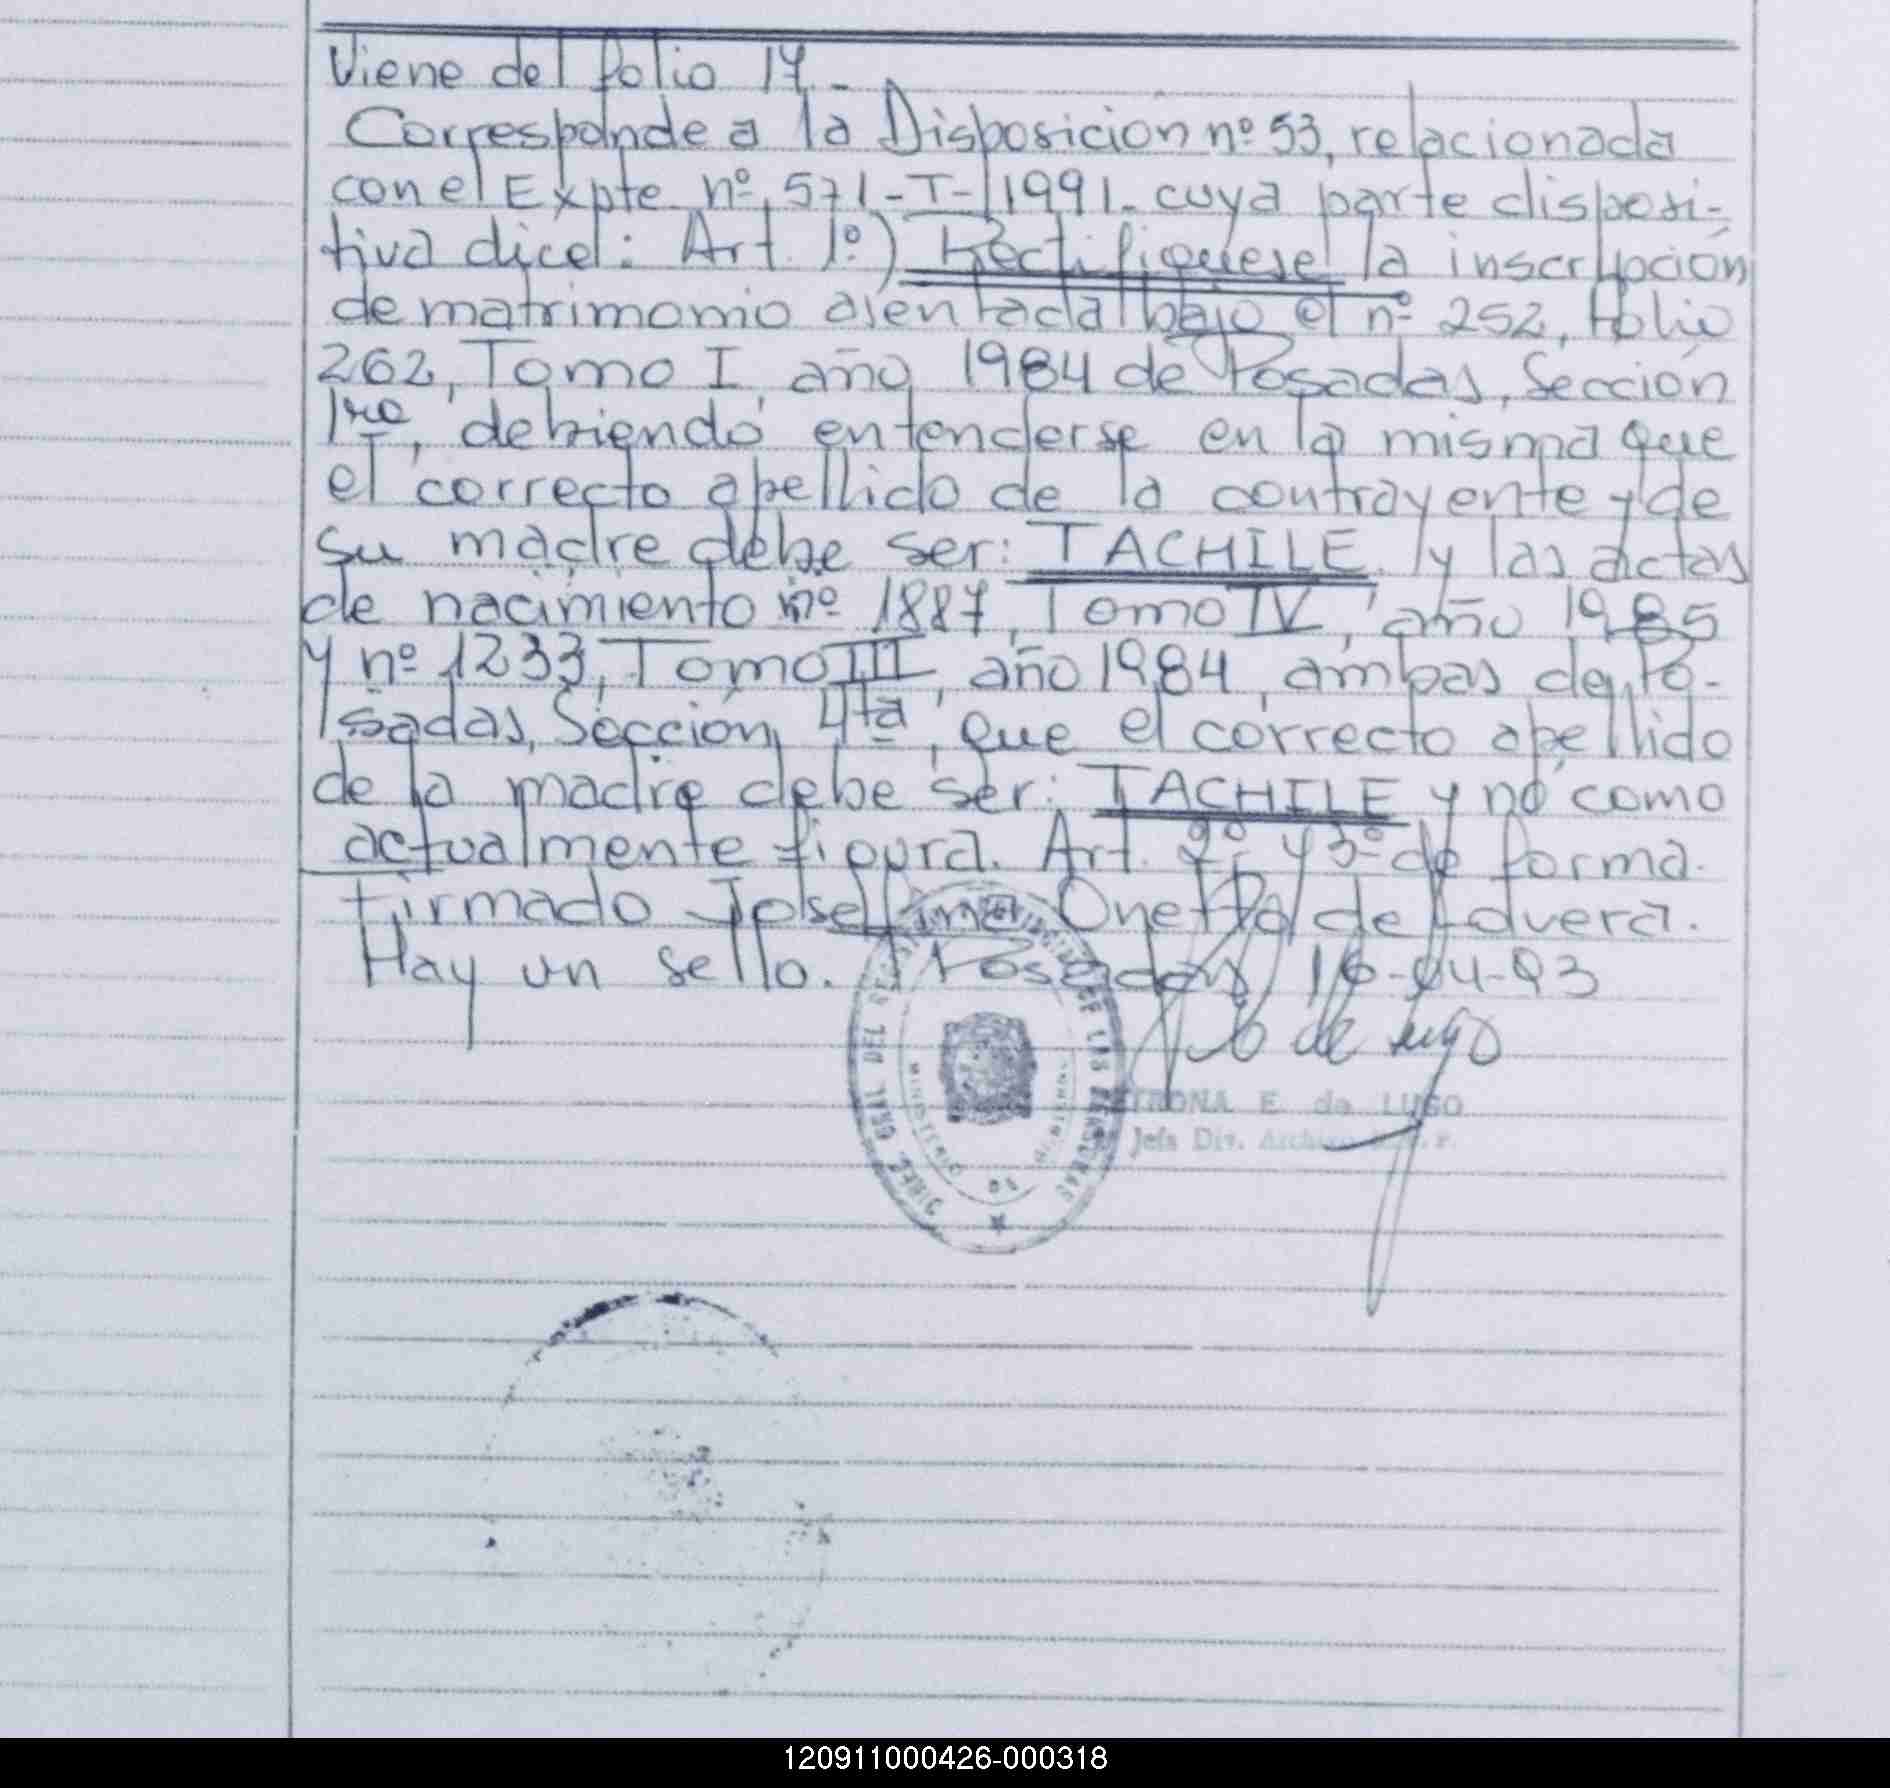 Viene del folio 17.-
Corresponde a la Disposicion nº 53, relacionada
con el Expte nº 571-T-1991- cuya parte disposi-
tiva dice: Art. 1º) Rectifiquese la inscripción
de matrimonio asentada bajo el nº 252, Folio
262, Tomo I, año 1984 de Posadas, Sección
1ra, debiendo entenderse en la misma que
el correcto apellido de la contrayente y de
su madre debe ser: TACHILE. y las actas
de nacimiento nº 1887, Tomo IV, año 1985
y nº 1233, Tomo III, año 1984, ambas de Po-
sadas, Sección 4ta, que el correcto apellido
de la madre debe ser: TACHILE y no como
actualmente figura. Art. 2º y 3º de forma.
Firmado Josefina Onetto de
Hay un sello. Posadas, 16-04-93
de Lugo
E de LUGO
Jefa Div. Archivo
DE LAS PERSONAS
MINISTERIO
120911000426-000318